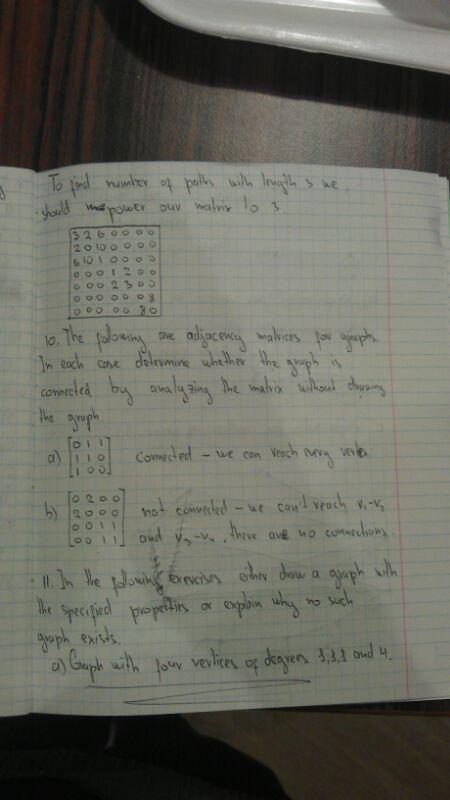 To find number of paths with length 3 we
should power our matrix to 3
3 2 6 0 0 0 0
2 0 10 0 0 0 0
6 10 1 0 0 0 0
0 0 0 1 2 0 0
0 0 0 2 3 0 0
0 0 0 0 0 0 8
0 0 0 0 0 8 0
10. The following are adjacency matrices for graphs.
In each case determine whether the graph is
connected by analyzing the matrix without drawing
the graph
a) [0 1 1
1 1 0
1 0 0] connected – we can reach every vertex
b) [0 2 0 0
2 0 0 0
0 0 1 1
0 0 1 1] not connected – we can't reach v1-v2
and v3-v4, there are no connections.
11. In the following exercises either draw a graph with
the specified properties or explain why no such
graph exists.
a) Graph with four vertices of degrees 1,1,1 and 4.